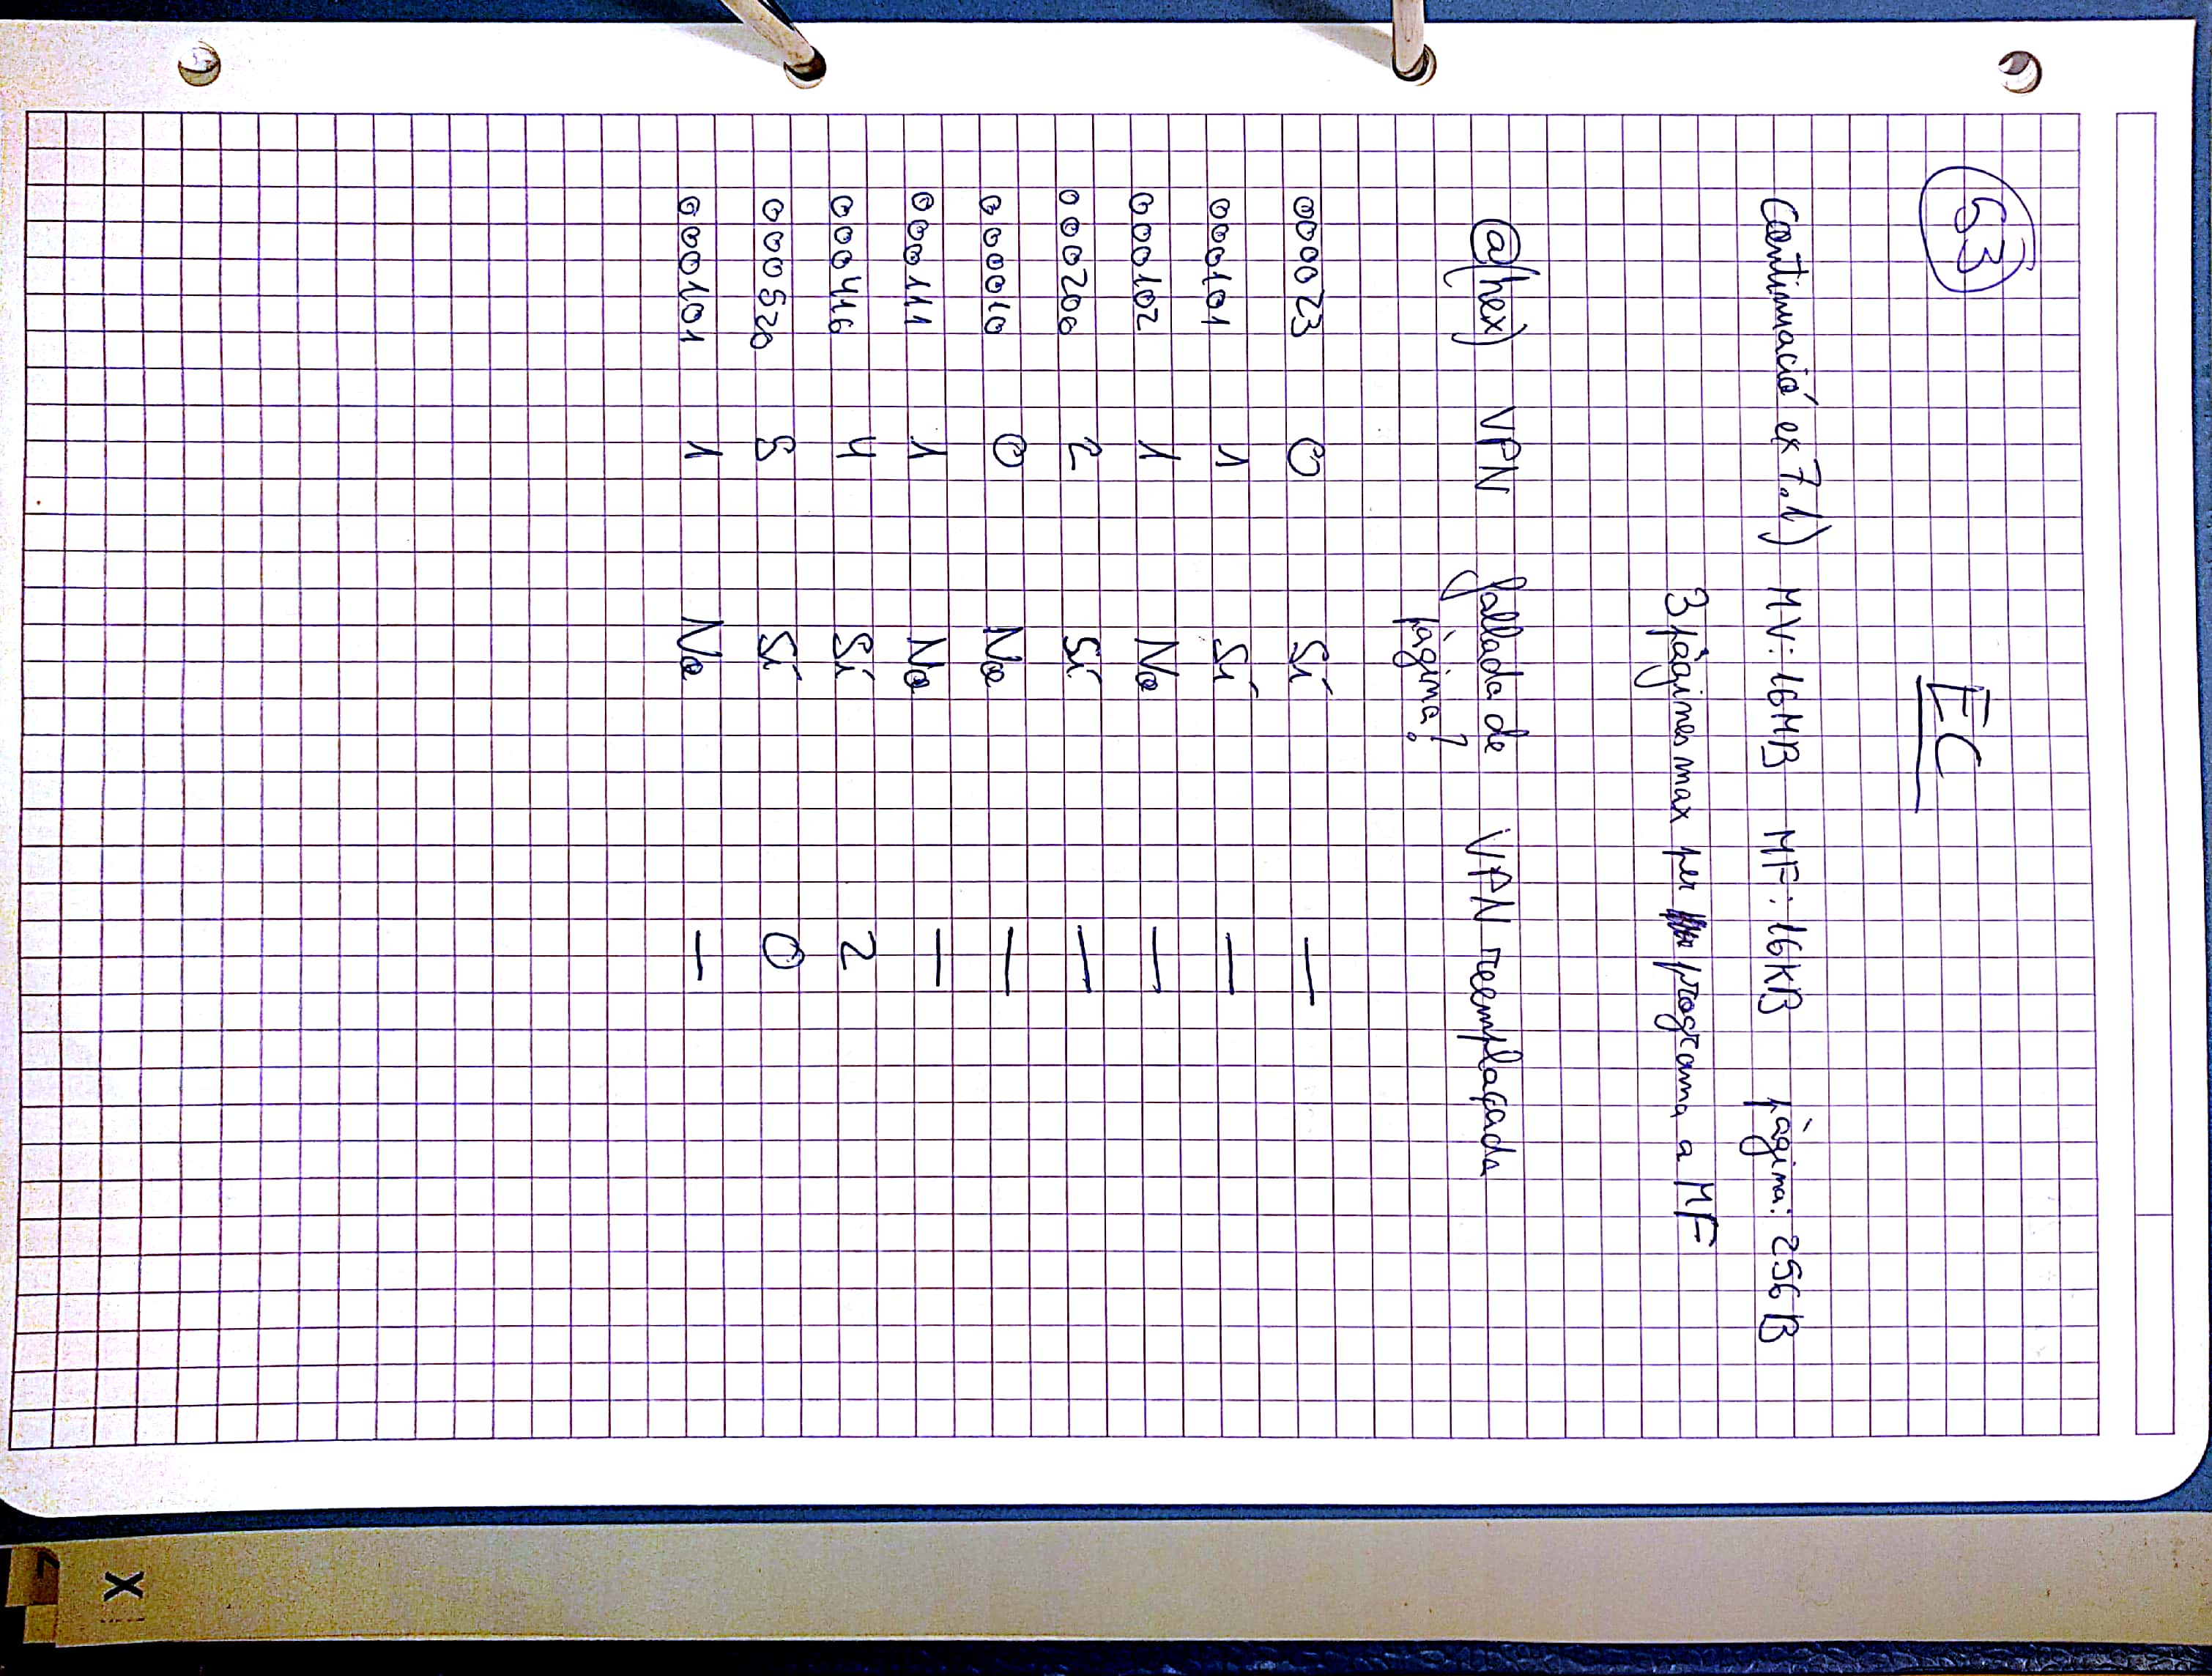 53
EC
Continuació ex 7.1) MV: 16MB MF: 16KB pàgina: 256B
3 pàgines max per programa a MF
@(hex) VPN fallada de VPN reemplaçada
pàgina?
000023 0 Sí —
000101 1 Sí —
000102 1 No —
000200 2 Sí —
000010 0 No —
000111 1 No —
000416 4 Sí 2
000520 5 Sí 0
000101 1 No —
X